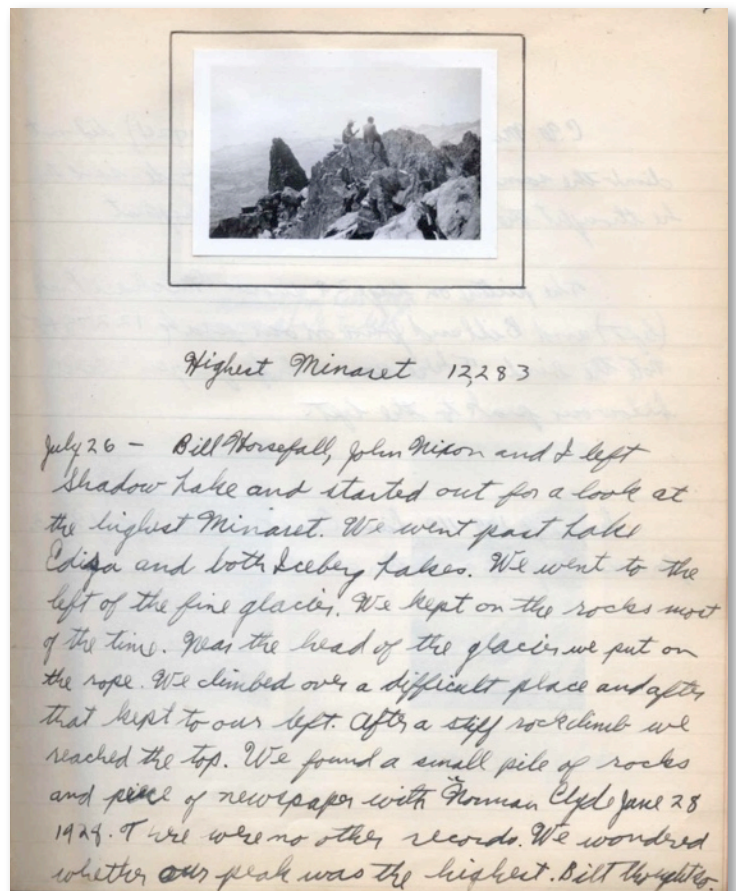 Highest Minaret 12,283
July 26 – Bill Horsefall, John Nixon and I left
Shadow Lake and started out for a look at
the highest Minaret. We went past Lake
Ediza and both Iceberg Lakes. We went to the
left of the fine glacier. We kept on the rocks most
of the time. Near the head of the glacier we put on
the rope. We climbed over a difficult place and after
that kept to our left. After a stiff rock climb we
reached the top. We found a small pile of rocks
and piece of newspaper with "Norman Clyde June 28
1928. There were no other records. We wondered
whether our peak was the highest. Bill thought so